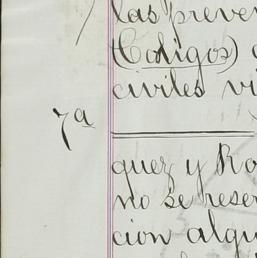 las preven
(Codigos)
civiles vi
7ª
quez y Ro
no se reser
cion algu